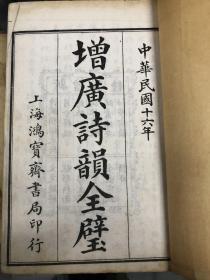 中華民國十六年
增廣詩韻全璧
上海鴻寶齋書局印行